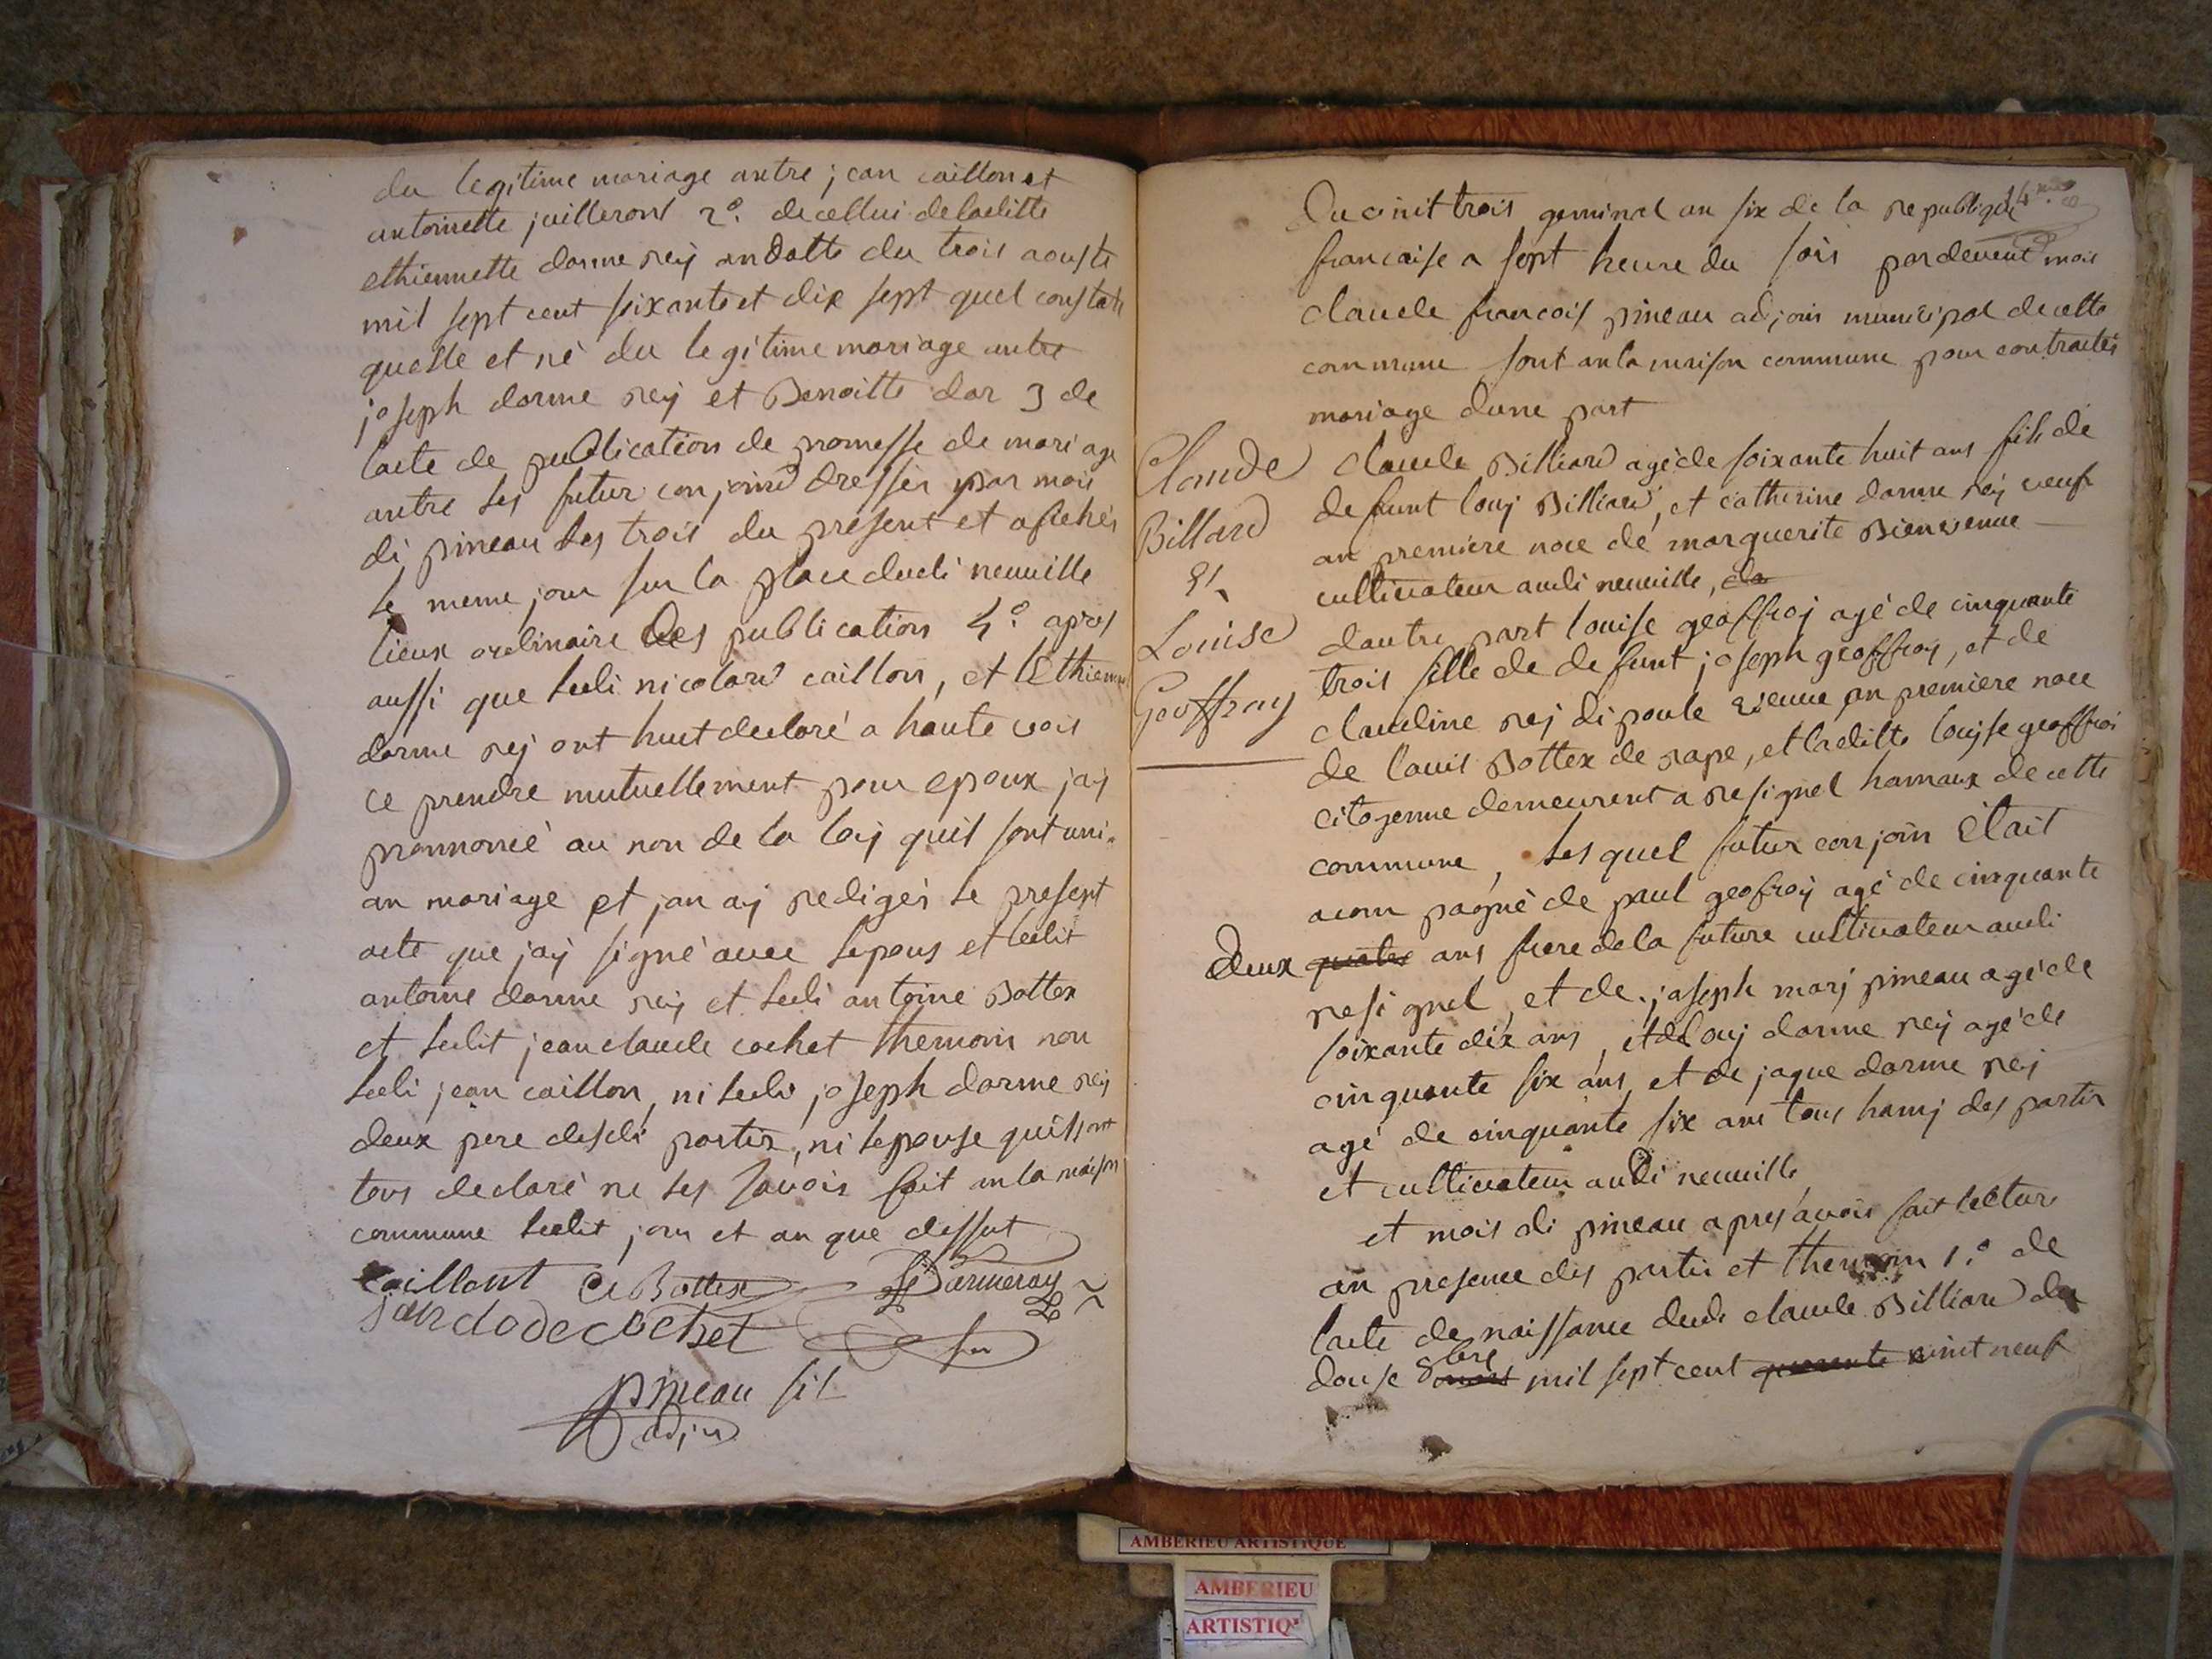 du legitime mariage antre jean caillon et
antoinette juilleront 2°. de cellui de laditte
ethiennette darme rey an datte du trois aouste
mil sept cent soixante et dix sept quel constate
quelle et né du legitime mariage antre
joseph darme rey et Benoitte dor 3 de
lacte de publication de promesse de mariage
antre les futur conjoind dresser par mois
di pineau les trois du present et afichés
le meme jour sur la place dudi neuville
lieux ordinaire des publication 4°. apres
aussi que ledi nicolard caillon, et Ethienne
darme rey ont hut declaré a haute vois
ce prendre mutuellement pour epoux jay
prononcé au non de la loy quil sont uni
an mariage et jan ay rediger le present
acte que jay signé avec lepous et ledit
antoine darme rey et ledi antoine Bottex
et ledit jean claude cochet themoin non
ledi jean caillon, ni ledi joseph darme rey
deux pere desdi partis, ni lepouse quil sont
tous declaré ne les savoir fait an la maison
commune ledit jour et an que dessut
Caillont A Bottex Darmeray
jan clode cochet
pineau fil
adjn
14
Du vint trois geminal an six de la republique
francaise a sept heure du soir pardevent mois
claude francois pineau adjoin municipal de cette
commune sont an la maison commune pour contracter
mariage dune part
Claude
Billard
et
Louise
Geoffray
claude Billiard agé de soixante huit ans fils de
defunt louy Billiard, et catherine darme rey veuf
an premiere noce de marguerite Bienvenue
cultivateur audi neuville, da
dautre part louise geoffroy agé de cinquante
trois fille de defunt joseph geoffroy, et de
claudine rey di poule veuve an premiere noce
de louis Bottex de rape, et laditte louyse geoffroi
citoyenne demeurent a resignel hamaux de cette
commune, les quel futur conjoin était
acompagné de paul geofroy agé de cinquante
Deux quatre ans frere de la future cultivateur audi
resignel, et de joseph marj pineau agé de
soixante dix ans, et de louy darme rey agé de
cinquante six ans, et de jaque darme rey
agé de cinquante six ans tous hamj des partis
et cultivateur audi neuville
et mois di pineau apres avoir fait lecture
an presence des partis et themoin 1.° de
lacte de naissance dudi claude Billiard du
douse 8bre mil sept cent quarante vint neuf
AMBERIEU ARTISTIQUE
AMBERIEU
ARTISTIQ